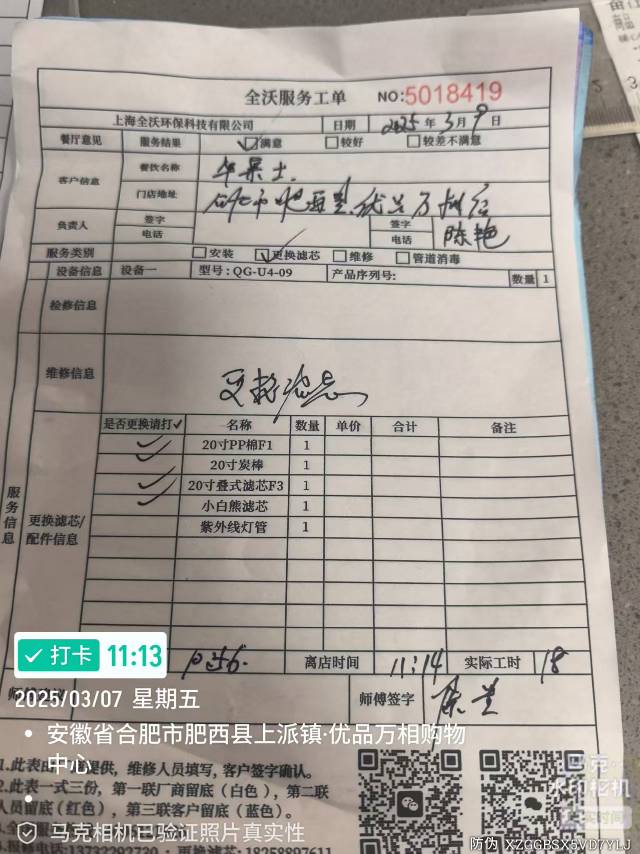 全沃服务工单 NO:5018419
上海全沃环保科技有限公司 日期 2025年3月9日
餐厅意见 服务结果 满意 较好 较差不满意
客户信息 餐饮名称 华莱士.
门店地址 合肥市肥西县优品万相店
负责人 签字 签字
电话 电话 陈艳
服务类别 安装 更换滤芯 维修 管道消毒
设备信息 设备一 型号:QG-U4-09 产品序列号: 数量 1
检修信息
维修信息 更换滤芯
服务信息
更换滤芯/配件信息
是否更换请打✓ 名称 数量 单价 合计 备注
✓ 20寸PP棉F1 1
✓ 20寸炭棒 1
✓ 20寸叠式滤芯F3 1
✓ 小白熊滤芯 1
紫外线灯管 1
10:56. 离店时间 11:14 实际工时 18
师傅签字
打卡 11:13
2025/03/07 星期五
安徽省合肥市肥西县上派镇·优品万相购物
中心
1.此表由 提供，维修人员填写，客户签字确认。
2.此表一式三份，第一联厂商留底（白色），第二联
人员留底（红色），第三联客户留底（蓝色）。
马克相机已验证照片真实性
马克
水印相机
真实时间
防伪 XZGGBSX5VD7YLJ